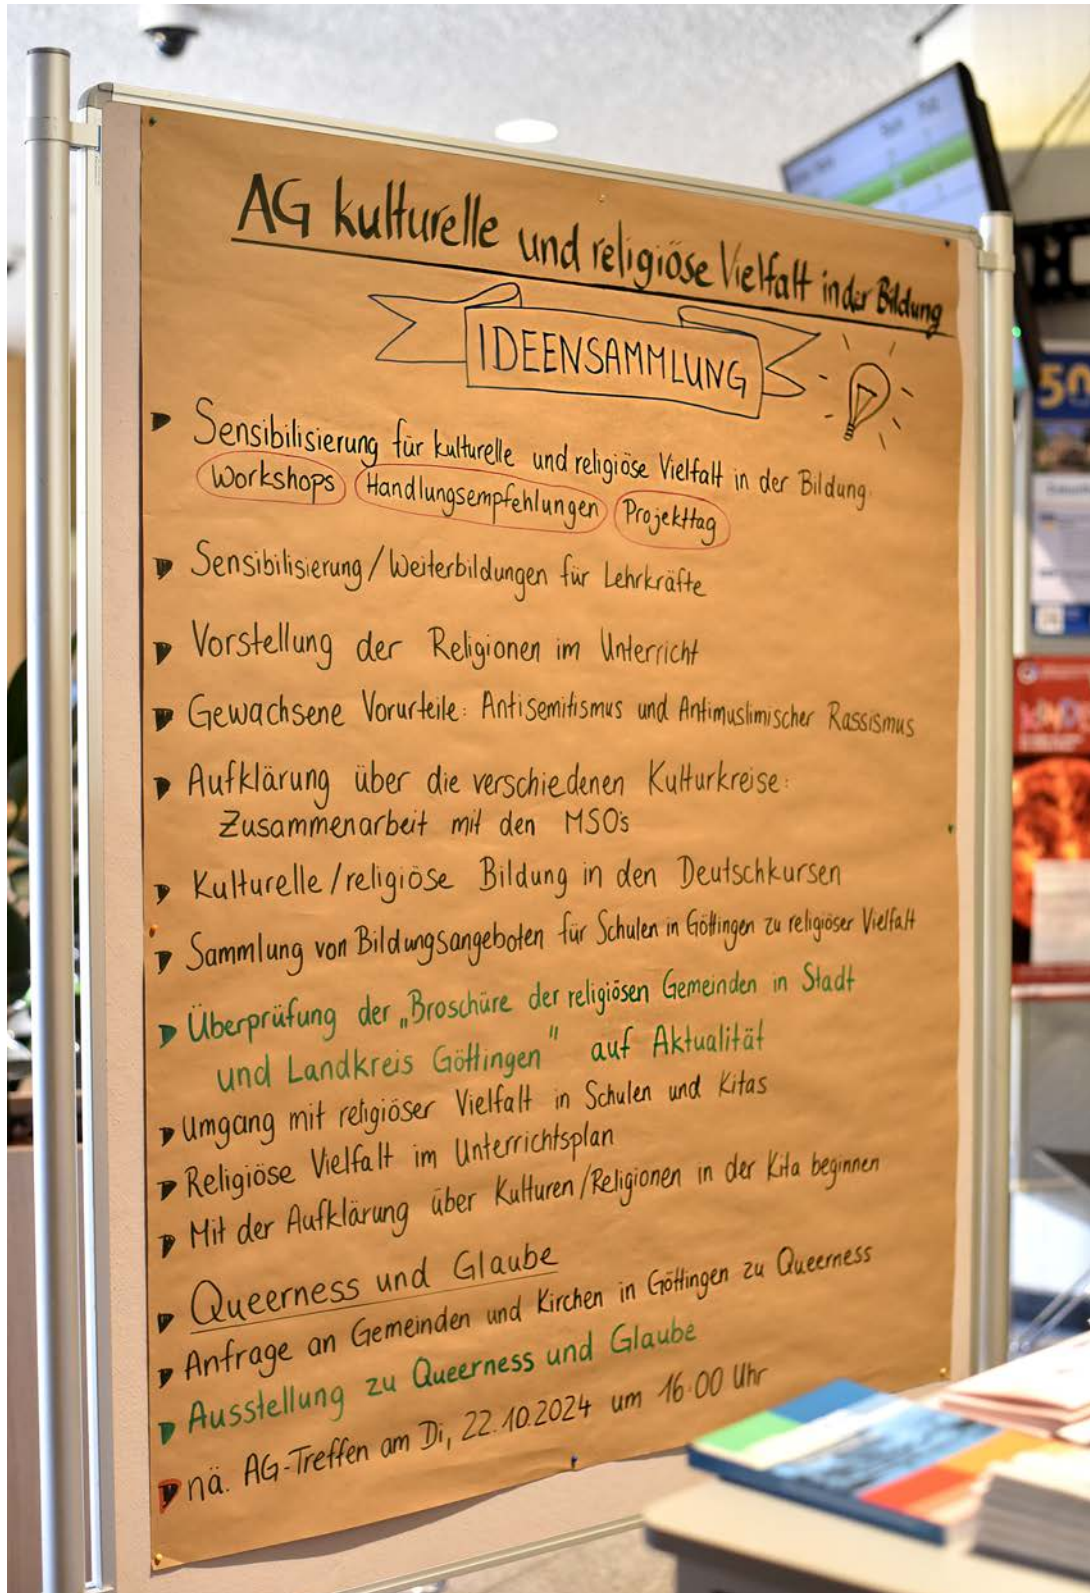 AG kulturelle und religiöse Vielfalt in der Bildung
IDEENSAMMLUNG
Sensibilisierung für kulturelle und religiöse Vielfalt in der Bildung
Workshops Handlungsempfehlungen Projekttag
Sensibilisierung/Weiterbildungen für Lehrkräfte
Vorstellung der Religionen im Unterricht
Gewachsene Vorurteile: Antisemitismus und Antimuslimischer Rassismus
Aufklärung über die verschiedenen Kulturkreise:
Zusammenarbeit mit den MSO's
Kulturelle/religiöse Bildung in den Deutschkursen
Sammlung von Bildungsangeboten für Schulen in Göttingen zu religiöser Vielfalt
Überprüfung der „Broschüre der religiösen Gemeinden in Stadt
und Landkreis Göttingen" auf Aktualität
Umgang mit religiöser Vielfalt in Schulen und Kitas
Religiöse Vielfalt im Unterrichtsplan
Mit der Aufklärung über Kulturen/Religionen in der Kita beginnen
Queerness und Glaube
Anfrage an Gemeinden und Kirchen in Göttingen zu Queerness
Ausstellung zu Queerness und Glaube
nä. AG-Treffen am Di, 22.10.2024 um 16:00 Uhr
50